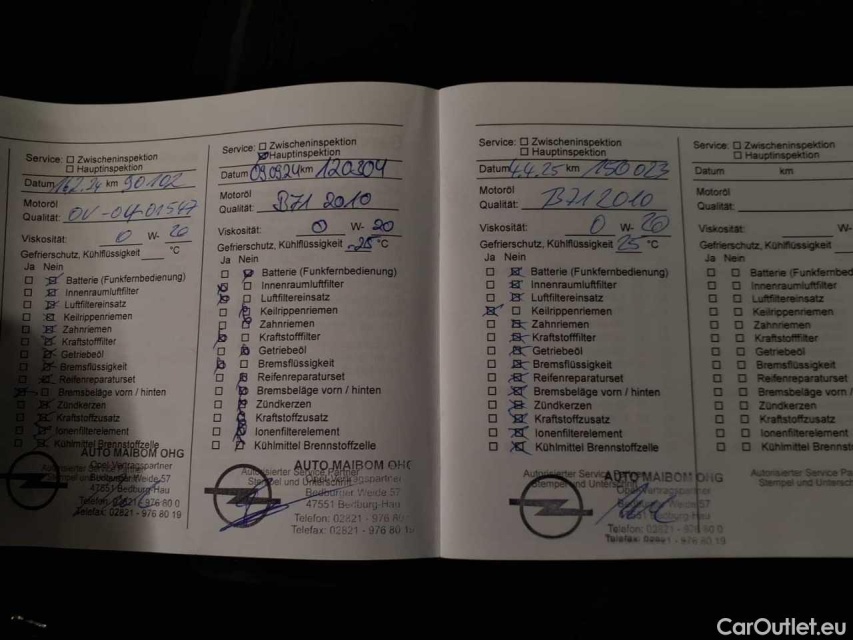 Service: Zwischeninspektion
Hauptinspektion
Datum 16.2.24 km 90.102
Motoröl
Qualität: OV-04-01547
Viskosität: 0 W- 20
Gefrierschutz, Kühlflüssigkeit °C
Ja Nein
Batterie (Funkfernbedienung)
Innenraumluftfilter
Luftfiltereinsatz
Keilrippenriemen
Zahnriemen
Kraftstofffilter
Getriebeöl
Bremsflüssigkeit
Reifenreparaturset
Bremsbeläge vorn / hinten
Zündkerzen
Kraftstoffzusatz
Ionenfilterelement
Kühlmittel Brennstoffzelle
AUTO MAIBOM OHG
Opel Vertragspartner
Bedburger Weide 57
47551 Bedburg-Hau
Telefon: 02821 - 976 80 0
Telefax: 02821 - 976 80 19
Service: Zwischeninspektion
Hauptinspektion
Datum 09.09.24 km 120304
Motoröl
Qualität: B71 2010
Viskosität: 0 W- 20
Gefrierschutz, Kühlflüssigkeit -25 °C
Ja Nein
Batterie (Funkfernbedienung)
Innenraumluftfilter
Luftfiltereinsatz
Keilrippenriemen
Zahnriemen
Kraftstofffilter
Getriebeöl
Bremsflüssigkeit
Reifenreparaturset
Bremsbeläge vorn / hinten
Zündkerzen
Kraftstoffzusatz
Ionenfilterelement
Kühlmittel Brennstoffzelle
Autorisierter Service Partner
Stempel und Unterschrift
AUTO MAIBOM OHG
Opel Vertragspartner
Bedburger Weide 57
47551 Bedburg-Hau
Telefon: 02821 - 976 80
Telefax: 02821 - 976 80 1
Service: Zwischeninspektion
Hauptinspektion
Datum 4.4.25 km 150 023
Motoröl
Qualität: B71 2010
Viskosität: 0 W- 20
Gefrierschutz, Kühlflüssigkeit 25 °C
Ja Nein
Batterie (Funkfernbedienung)
Innenraumluftfilter
Luftfiltereinsatz
Keilrippenriemen
Zahnriemen
Kraftstofffilter
Getriebeöl
Bremsflüssigkeit
Reifenreparaturset
Bremsbeläge vorn / hinten
Zündkerzen
Kraftstoffzusatz
Ionenfilterelement
Kühlmittel Brennstoffzelle
Autorisierter Service
Stempel und Unterschrift
AUTO MAIBOM OHG
Opel Vertragspartner
Weide 57
Bedburg-Hau
Telefon: 02821 - 80 0
Telefax: 02821 - 976 80 19
Service: Zwischeninspektion
Hauptinspektion
Datum km
Motoröl
Qualität:
Viskosität: W-
Gefrierschutz, Kühlflüssigkeit
Ja Nein
Batterie (Funkfernbed
Innenraumluftfilter
Luftfiltereinsatz
Keilrippenriemen
Zahnriemen
Kraftstofffilter
Getriebeöl
Bremsflüssigkeit
Reifenreparaturset
Bremsbeläge vorn /
Zündkerzen
Kraftstoffzusatz
Ionenfilterelement
Kühlmittel Brennst
Autorisierter Service Pa
Stempel und Unters
CarOutlet.eu